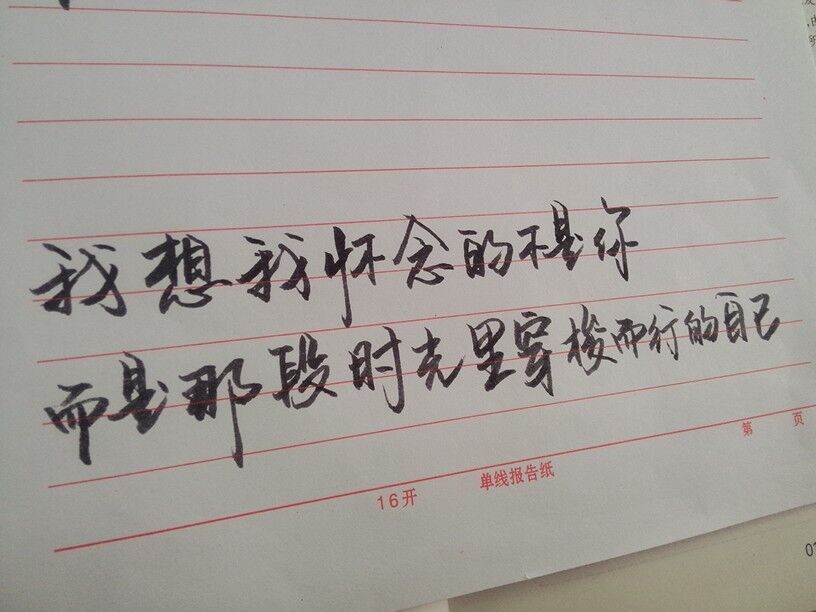 我想我怀念的不是你
而是那段时光里穿梭而行的自己
16开 单线报告纸 第 页